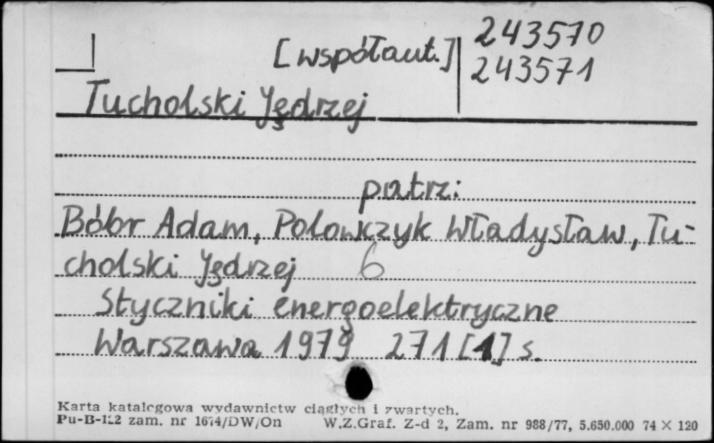 [współaut.] 243570
243571
Tucholski Jędrzej
patrz:
Bóbr Adam, Polowczyk Władysław, Tu-
cholski Jędrzej 6
Styczniki energoelektryczne
Warszawa 1979 271 [1] s.
Karta katalogowa wydawnictw ciągłych i zwartych.
Pu-B-112 zam. nr 1674/DW/On W.Z.Graf. Z-d 2, Zam. nr 988/77, 5.650.000 74 × 120